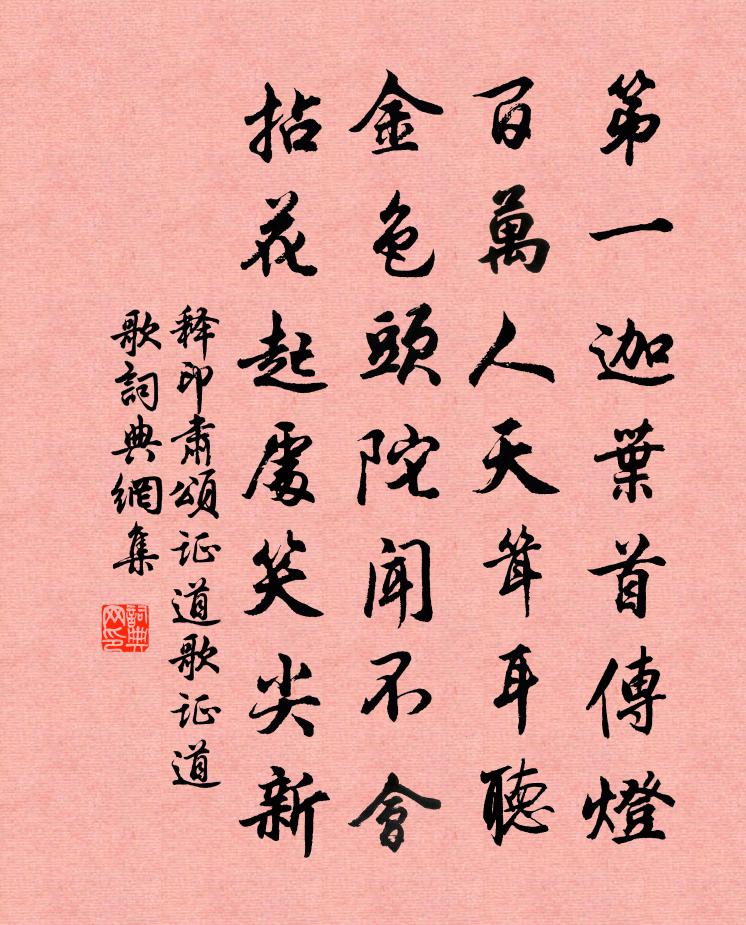 第一迦葉首傳燈
百萬人天聳耳聽
金色頭陀聞不會
拈花起處笑尖新
释印肅頌证道歌证道
歌詞典網集
詞典
网印